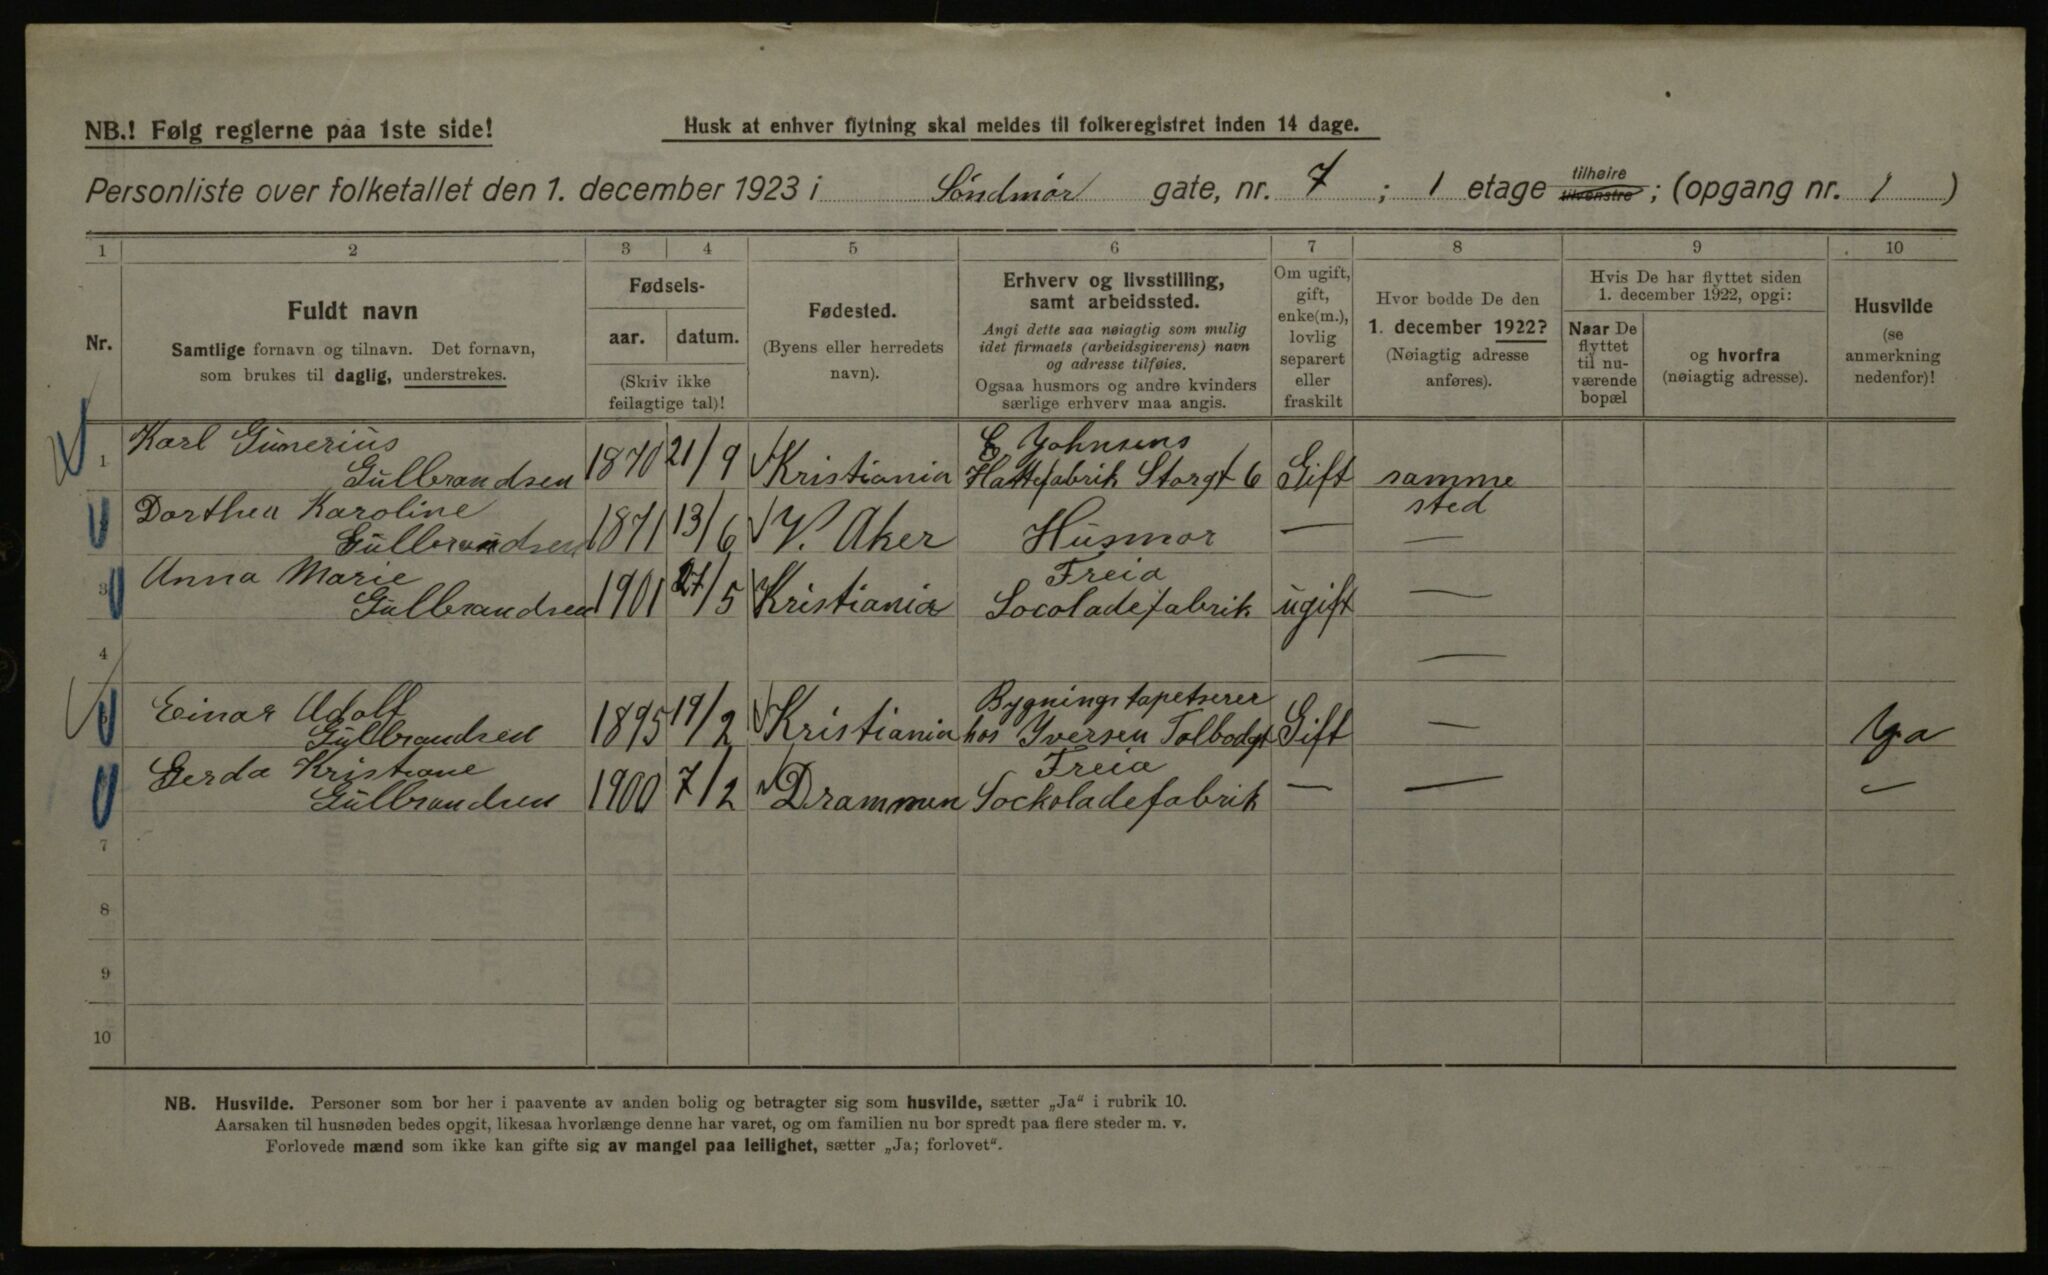 NB.! Følg reglerne paa 1ste side!
Husk at enhver flytning skal meldes til folkeregistret inden 14 dage.
Personliste over folketallet den 1. december 1923 i Söndmör gate, nr. 7 ; 1 etage tilhøire tilvenstre ; (opgang nr. 1 )
1 2 3 4 5 6 7 8 9 10
Nr.
Fuldt navn
Samtlige fornavn og tilnavn. Det fornavn,
som brukes til daglig, understrekes.
Fødsels-
aar. datum.
(Skriv ikke
feilagtige tal)!
Fødested.
(Byens eller herredets
navn).
Erhverv og livsstilling,
samt arbeidssted.
Angi dette saa nøiagtig som mulig
idet firmaets (arbeidsgiverens) navn
og adresse tilføies.
Ogsaa husmors og andre kvinders
særlige erhverv maa angis.
Om ugift,
gift,
enke(m.),
lovlig
separert
eller
fraskilt
Hvor bodde De den
1. december 1922?
(Nøiagtig adresse
anføres).
Hvis De har flyttet siden
1. december 1922, opgi:
Naar De
flyttet
til nu-
værende
bopæl
og hvorfra
(nøiagtig adresse).
Husvilde
(se
anmerkning
nedenfor)!
Karl Gunerius E Yohnsens
1 Gulbrandsen 1870 21/9 Kristiania Hattefabrik Storgt 6 Gift samme
Dorthea Karoline sted
Gulbrandsen 1871 13/6 V. Aker Husmor — —
Anna Marie Freia
3 Gulbrandsen 1901 27/5 Kristiania Socoladefabrik ugift —
4 —
Einar Adolf Bygningstapetserer
5 Gulbrandsen 1895 19/2 Kristiania hos Yversen Tolbodgt Gift — Ya
Gerda Kristiane Freia
Gulbrandsen 1900 7/2 Drammen Sockoladefabrik — — —
7
8
9
10
NB. Husvilde. Personer som bor her i paavente av anden bolig og betragter sig som husvilde, sætter „Ja“ i rubrik 10.
Aarsaken til husnøden bedes opgit, likesaa hvorlænge denne har varet, og om familien nu bor spredt paa flere steder m. v.
Forlovede mænd som ikke kan gifte sig av mangel paa leilighet, sætter „Ja; forlovet“.